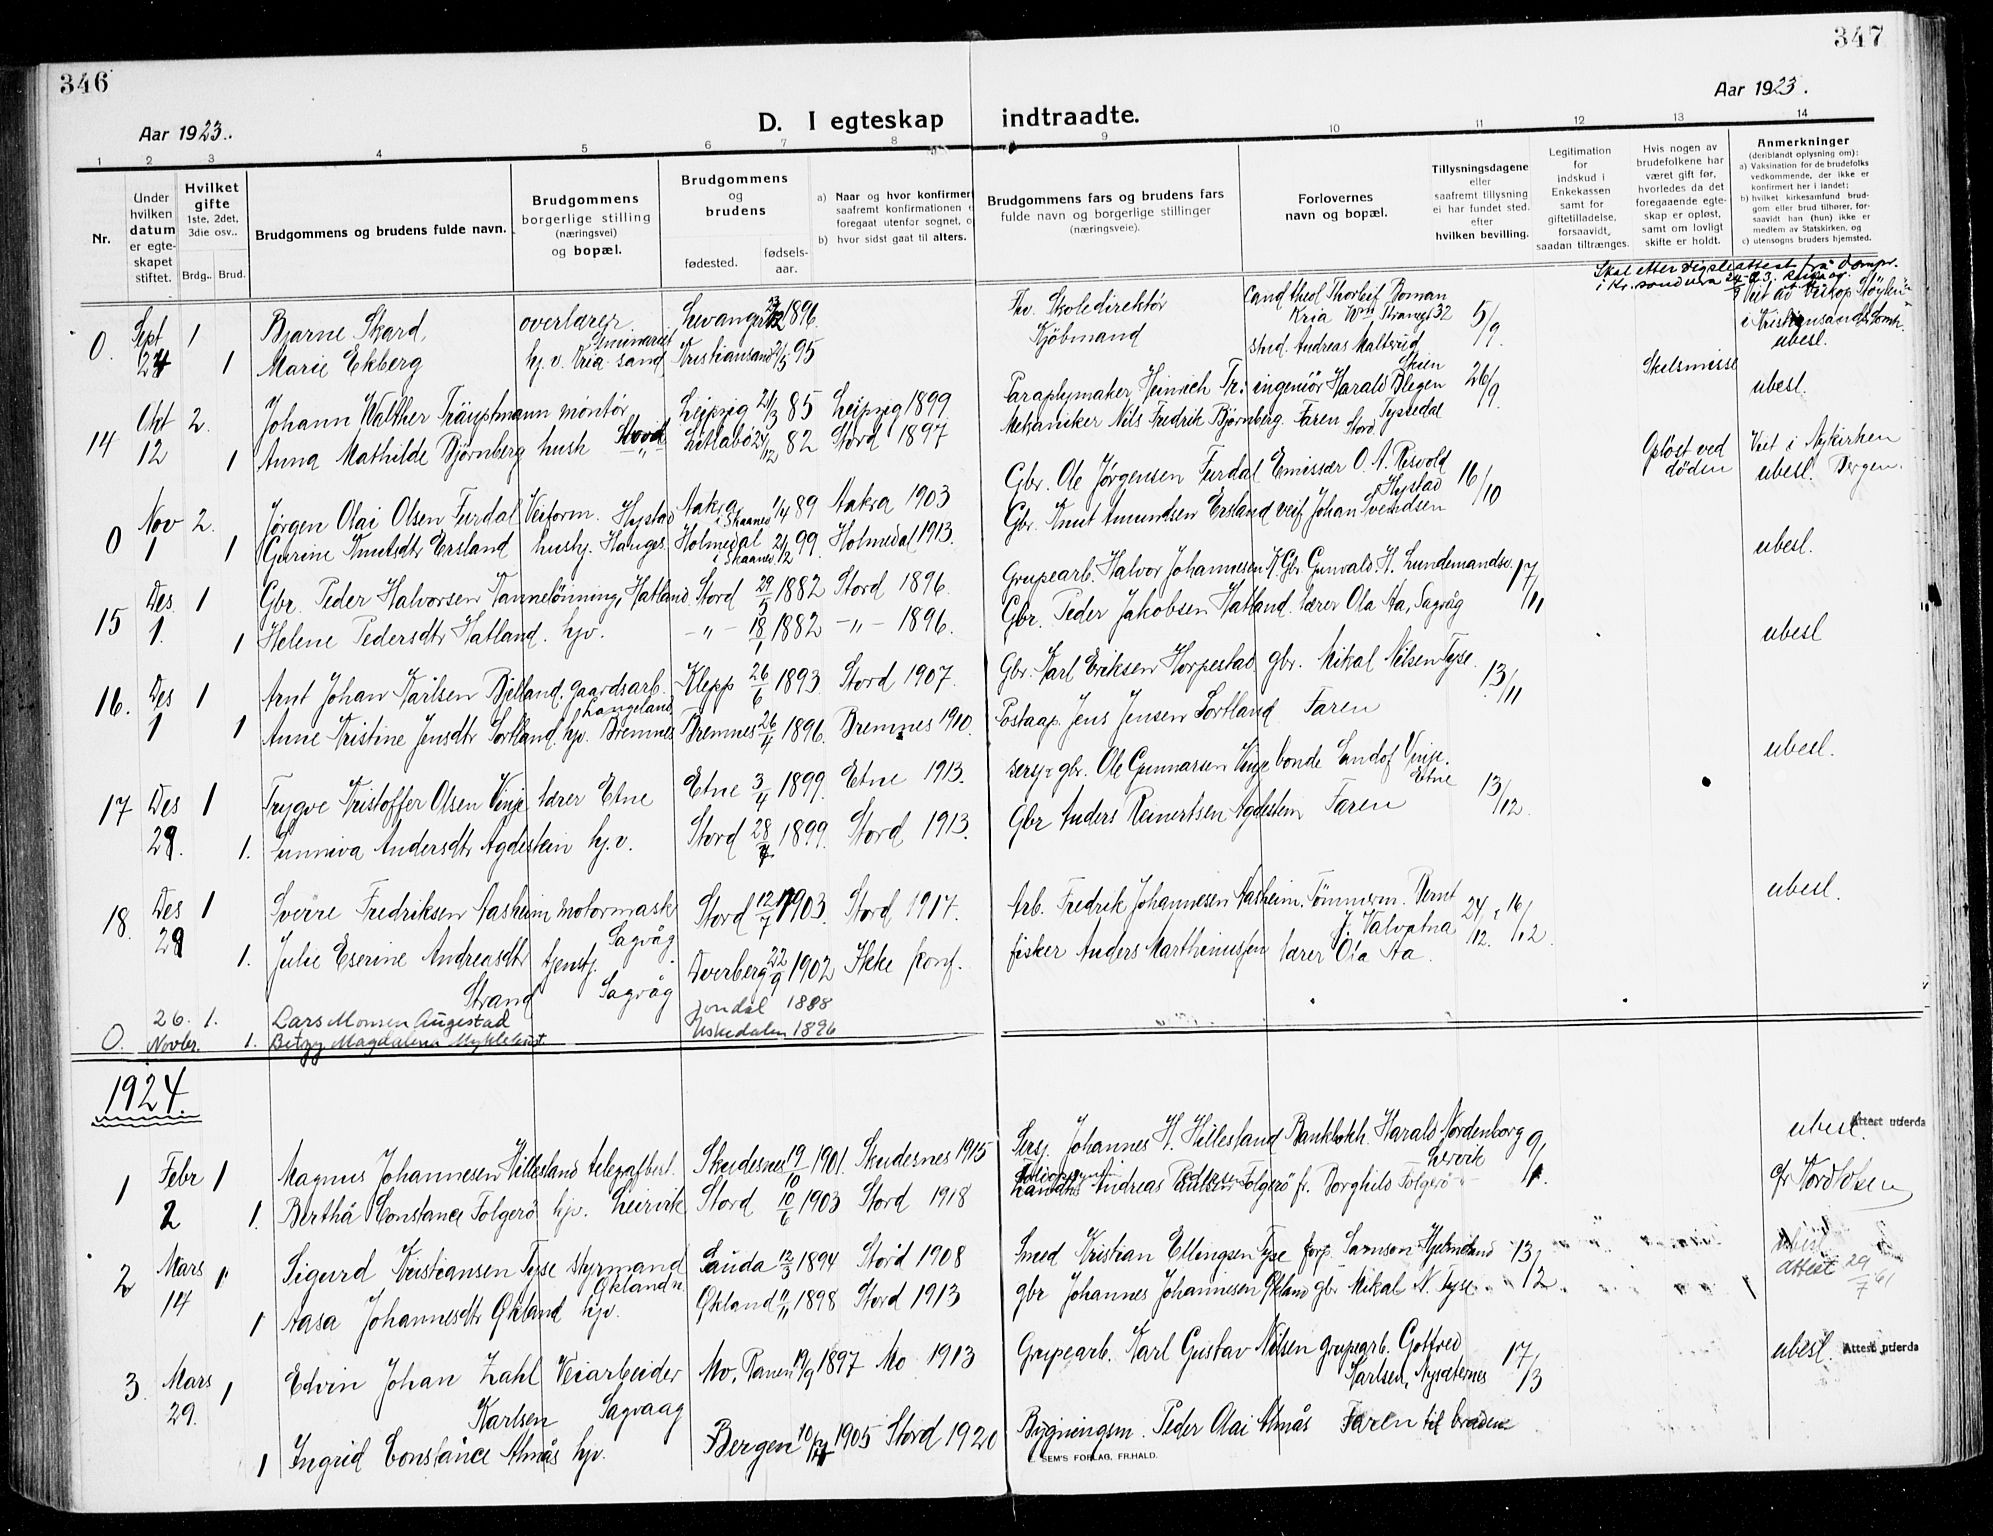 346
347
Aar 1923.
Aar 1923.
D. I egteskap indtraadte.
1 2 3 4 5 6 7 8 9 10 11 12 13 14
Nr.
Under hvilken datum er egteskapet stiftet.
Hvilket gifte
1ste, 2det, 3die osv..
Brdg.. Brud.
Brudgommens og brudens fulde navn.
Brudgommens borgerlige stilling (næringsvei) og bopæl.
Brudgommens og brudens
fødested.
fødselsaar.
a) Naar og hvor konfirmert
b) hvor sidst gaat til alters.
Brudgommens fars og brudens fars
fulde navn og borgerlige stillinger
(næringsveie).
Forlovernes navn og bopæl.
Tillysningsdagene
eller
saafremt tillysning
ei har fundet sted.
efter
hvilken bevilling.
Legitimation
for
indskud i
Enkekassen
samt for
giftetilladelse,
forsaavidt,
saadan tiltrænges.
Hvis nogen av
brudefolkene har
været gift før,
hvorledes da det
foregaaende egte-
skap er opløst,
samt om lovligt
skifte er holdt.
Anmerkninger
(deriblandt oplysning om):
a) Vaksination for de brudefolks
vedkommende, der ikke er
konfirmert her i landet;
b) hvilket kirkesamfund brud-
gom eller brud tilhører, for-
saavidt han (hun) ikke er
medlem av Statskirken, og
c) utensogns bruders hjemsted.
0. Sept 1 Bjarne Skard, overlærer Levanger 1896 Skoledirektør Cand theol Thorleif Boman 5/9
24 1 Marie Ekberg hj.v. Kria-sand Kristiansand 2/5 95 Kjøbmand stud. Andreas Maltrud ubesl.
14 Okt 2. Johann Walther Träuptmann montør Leipzig 21/3 85 Leipzig 1899 Paraplymaker Heinrich Tr: ingeniør Harald Blegen Skien 26/9 Skilsmisse ubesl.
12 1 Anna Mathilde Bjørnberg hush Stord Litlabø 24/12 82 Stord 1897 Mekaniker Nils Fredrik Bjørnberg. Faren Stord
0 Nov 2. Jørgen Olai Olsen Furdal Veiform. Hystad Aakra 1/4 89 Aakra 1903 Gbr. Ole Jørgensen Furdal Emissær O. A. Risvold 16/10 Opløst ved døden Viet i Nykirken Bergen.
1 1 Gurine Knutsdtr Ersland hushj. Hauges Holmedal i Skaanev 21/12 99. Holmedal 1913. Gbr. Knut Amundsen Ersland veif Johan Svendsen Hystad ubesl.
15 Des 1 Gbr. Peder Halvorsen Vannelønning, Hatland Stord 29/5 1882 Stord 1896. Grupearb. Halvor Johannesen V. Gbr. Gunvald. H. Lundemandsv. 17/11 ubesl.
1. 1 Helene Pedersdtr Hatland. hjv. -"- 18/1 1882 -"- 1896. Gbr. Peder Jakobsen Hatland. lærer Ola Aa, Sagvåg
16. Des 1 Arnt Johan Karlsen Bjelland, gaardsarb. Langeland Klepp 26/6 1893. Stord 1907. Gbr. Karl Eriksen Horpestad gbr. Mikal Nilsen Tyse. 13/11 ubesl
1 1 Anne Kristine Jensdtr Sortland. hjv. Bremnes Bremnes 26/4 1896. Bremnes 1910. Postaap. Jens Jensen Sortland Faren
17 Des 1 Trygve Kristoffer Olsen Vinje lærer Etne Etne 3/4 1899. Etne 1913. sersj gbr. Ole Gunnarsen Vinje bonde Lindof Vinje. Etne 13/12. ubesl.
29. 1. Sunniva Andersdtr Agdestein hj.v. Stord 28/4 1899. Stord 1913. Gbr Anders Reinertsen Agdestein Faren
18. Des 1 Sverre Fredriksen Aasheim motormask Sagvåg Stord 12/7 1903. Stord 1917. Arb. Fredrik Johannesen Aasheim. Tømmerm. Bernt J. Valvatna 24/12. 16/12. ubesl.
29 1. Julie Eserine Andreasdtr Strand tjenstj. Sagvåg Dverberg 22/9 1902 Ikke konf. fisker Anders Marthinussen lærer Ola Aa.
0. 26. 1. Lars Monsen Augestad Jondal 1888
Novbr. 1. Betzy Magdalena Myklebust Uskedalen 1896
1924
1 Febr 1 Magnus Johannesen Hillesland telegrafbest. Skudesnes 19/10 1901. Skudesnes 1915 Sersj. Johannes H. Hillesland Bankbokh. Harald Nordenborg Lervik 9/1. ubesl. Attest utferda
2 1. Bertha Constance Folgerö hjv. Leirvik Stord 10/6 1903 Stord 1918 Andreas Folgerö fr. Borghild Folgerö
2 Mars 1 Sigurd Kristiansen Tyse styrmand Økland Sauda 12/3 1894 Stord 1908 Smed Kristian Ellingsen Tyse forp. Samson Hjelmeland 13/2. ubesl attest 29/7 61
14 1 Aasa Johannesdtr Økland hjv. Økland 11/11 1898 Stord 1913 gbr Johannes Johannesen Økland gbr Mikal N. Tyse
3. Mars 1 Edvin Johan Zahl Karlsen Veiarbeider Sagvaag Mo, Ranen 19/9 1897 Mo 1913 Grupearb. Karl Gustav Nilsen grupearb. Gottfred Karlsen, Nysæternes 17/3 ubesl. Attest utferda
29. 1 Ingrid Constance Almås hjv. Bergen 10/4 1905 Stord 1920 Bygningsm. Peder Olai Almås Faren til bruden
SEM'S FORLAG, FR.HALD.